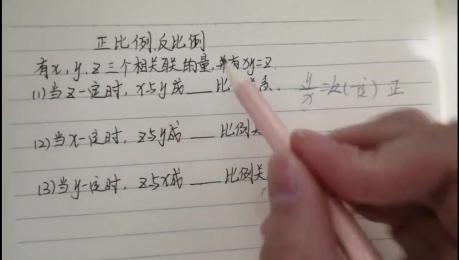 正比例,反比例
有x,y,z三个相关联的量,并有xy=z
(1)当z一定时,x与y成___比 关系. y/x=k(一定) 正
(2)当x一定时,z与y成___比例关
(3)当y一定时,z与x成___比例关